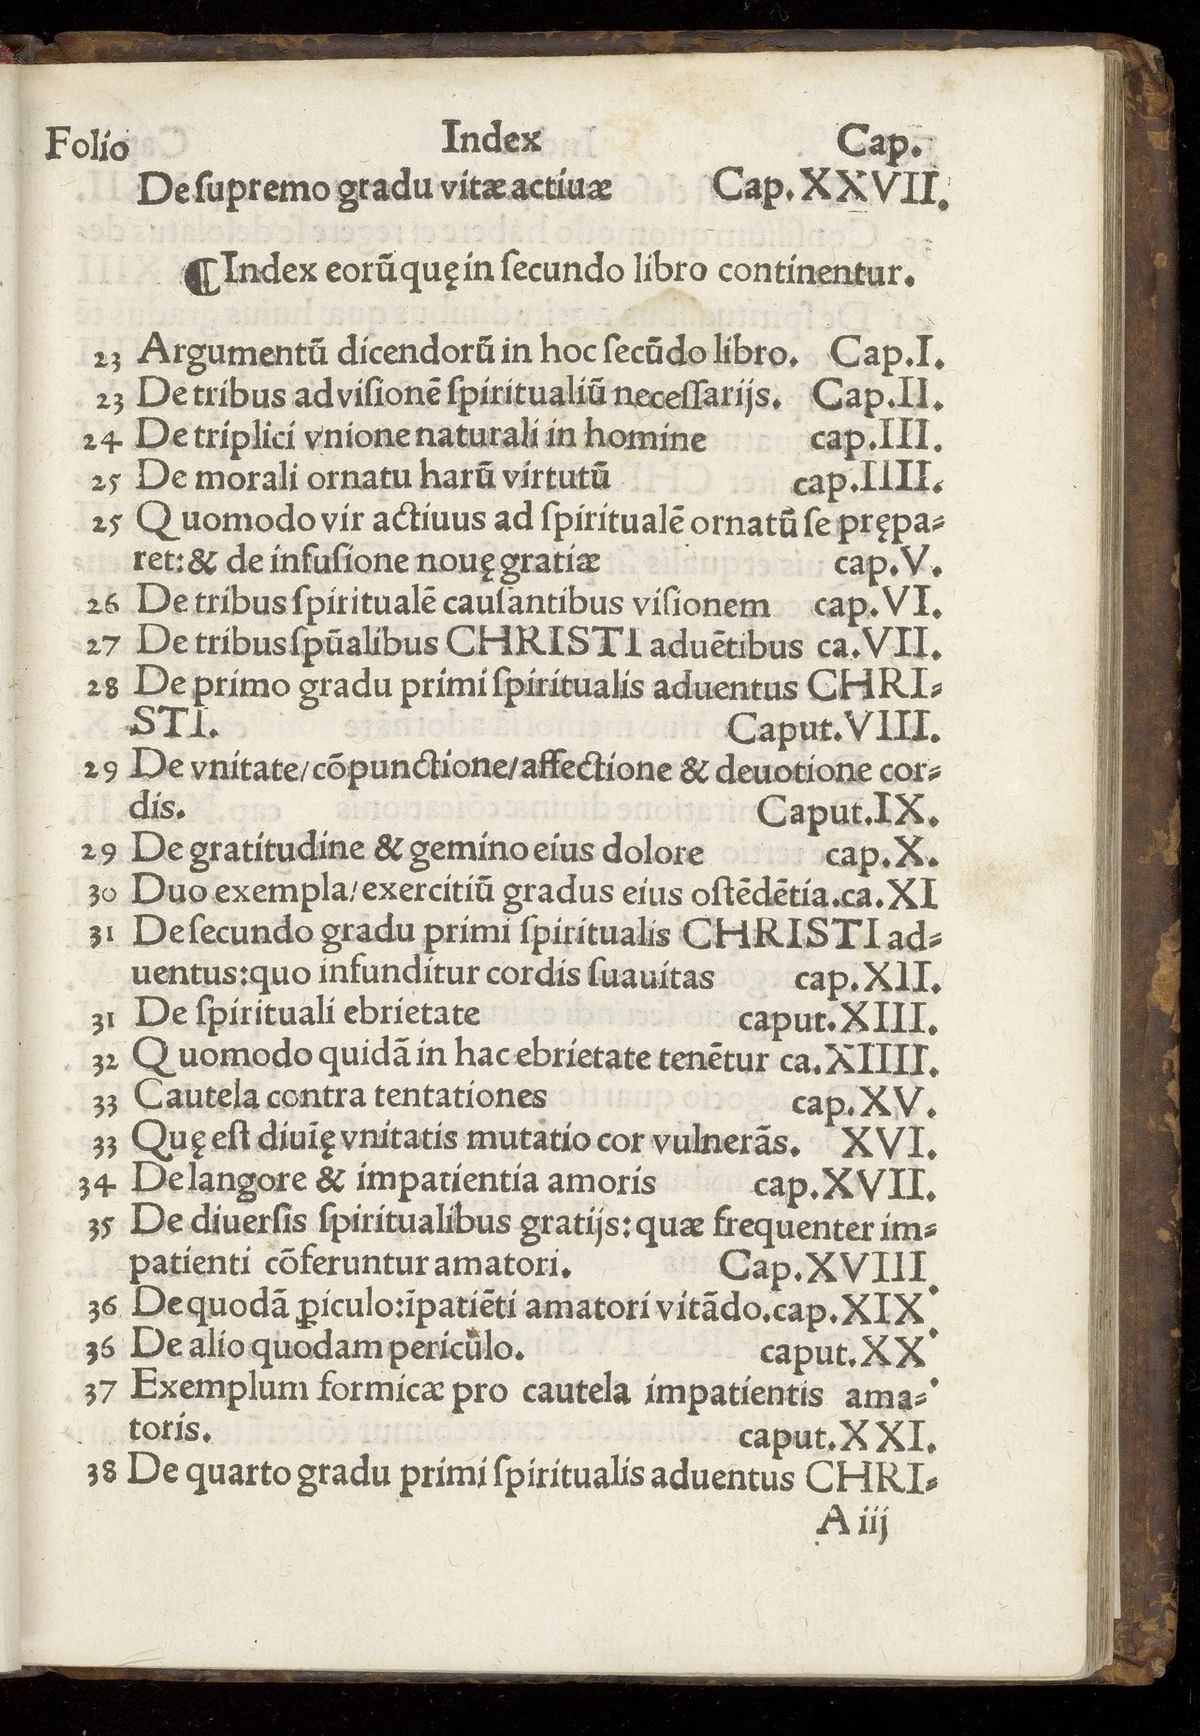 Folio Index Cap.
De ſupremo gradu vitæ actiuæ Cap. XXVII.
¶ Index eorū quę in ſecundo libro continentur.
23 Argumentū dicendorū in hoc ſecūdo libro. Cap.I.
23 De tribus ad viſionē ſpiritualiū neceſſarijs. Cap.II.
24 De triplici vnione naturali in homine cap.III.
25 De morali ornatu harū virtutū cap.IIII.
25 Quomodo vir actiuus ad ſpiritualē ornatū ſe prępa⸗
ret: & de infuſione nouę gratiæ cap.V.
26 De tribus ſpiritualē cauſantibus viſionem cap.VI.
27 De tribus ſpūalibus CHRISTI aduētibus ca.VII.
28 De primo gradu primi ſpiritualis aduentus CHRI⸗
STI. Caput.VIII.
29 De vnitate/cōpunctione/affectione & deuotione cor⸗
dis. Caput.IX.
29 De gratitudine & gemino eius dolore cap.X.
30 Duo exempla/exercitiū gradus eius oſtēdētia.ca.XI
31 De ſecundo gradu primi ſpiritualis CHRISTI ad⸗
uentus:quo infunditur cordis ſuauitas cap.XII.
31 De ſpirituali ebrietate caput.XIII.
32 Quomodo quidā in hac ebrietate tenētur ca.XIIII.
33 Cautela contra tentationes cap.XV.
33 Quę eſt diuīę vnitatis mutatio cor vulnerās. XVI.
34 De langore & impatientia amoris cap.XVII.
35 De diuerſis ſpiritualibus gratijs:quæ frequenter im⸗
patienti cōferuntur amatori. Cap.XVIII.
36 De quodā ꝑiculo:īpatiēti amatori vitādo.cap.XIX.
36 De alio quodam periculo. caput.XX.
37 Exemplum formicæ pro cautela impatientis ama⸗
toris. caput.XXI.
38 De quarto gradu primi ſpiritualis aduentus CHRI⸗
A iij